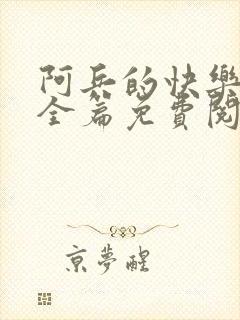 阿兵的快樂
全篇免費閱
京夢醒